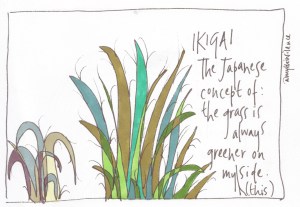 IKIGAI
The Japanese
concept of:
the grass is
always
greener on
my side.
(this)